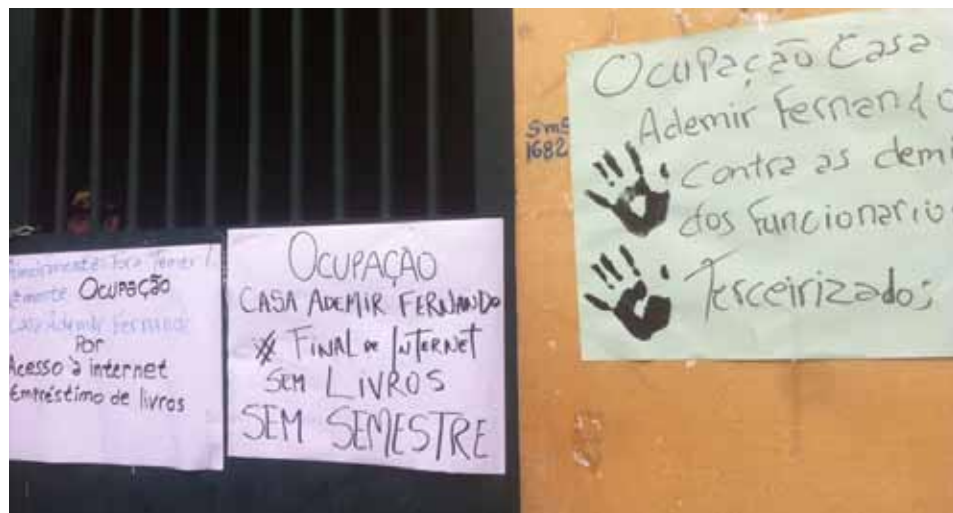 Primeiramente: Fora Temer!
Ocupação
Casa Ademir Fernando
Por
Acesso à internet
Empréstimo de livros
OCUPAÇÃO
CASA ADEMIR FERNANDO
# FINAL DE INTERNET
SEM LIVROS
SEM SEMESTRE
SMS
1682
Ocupação Casa
Ademir Fernando
Contra as demi
dos funcionario
Terceirizados